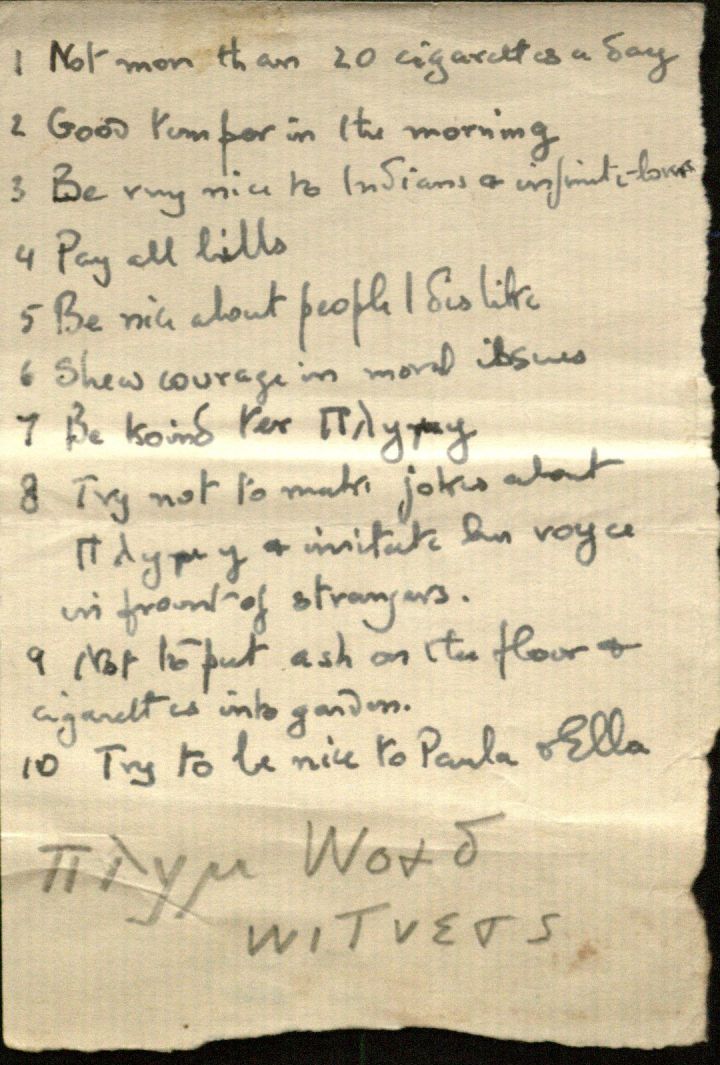 1 Not more than 20 cigarettes a day
2 Good temper in the morning
3 Be very nice to Indians & infinite-lovers
4 Pay all bills
5 Be nice about people I dislike
6 Shew courage in moral issues
7 Be koind ter Πλyμy
8 Try not to make jokes about
Πλyμy & imitate his voyce
in front of strangers.
9 Not to put ash on the floor &
cigarettes into garden.
10 Try to be nice to Paula & Ella
πλyμ
WITVESS